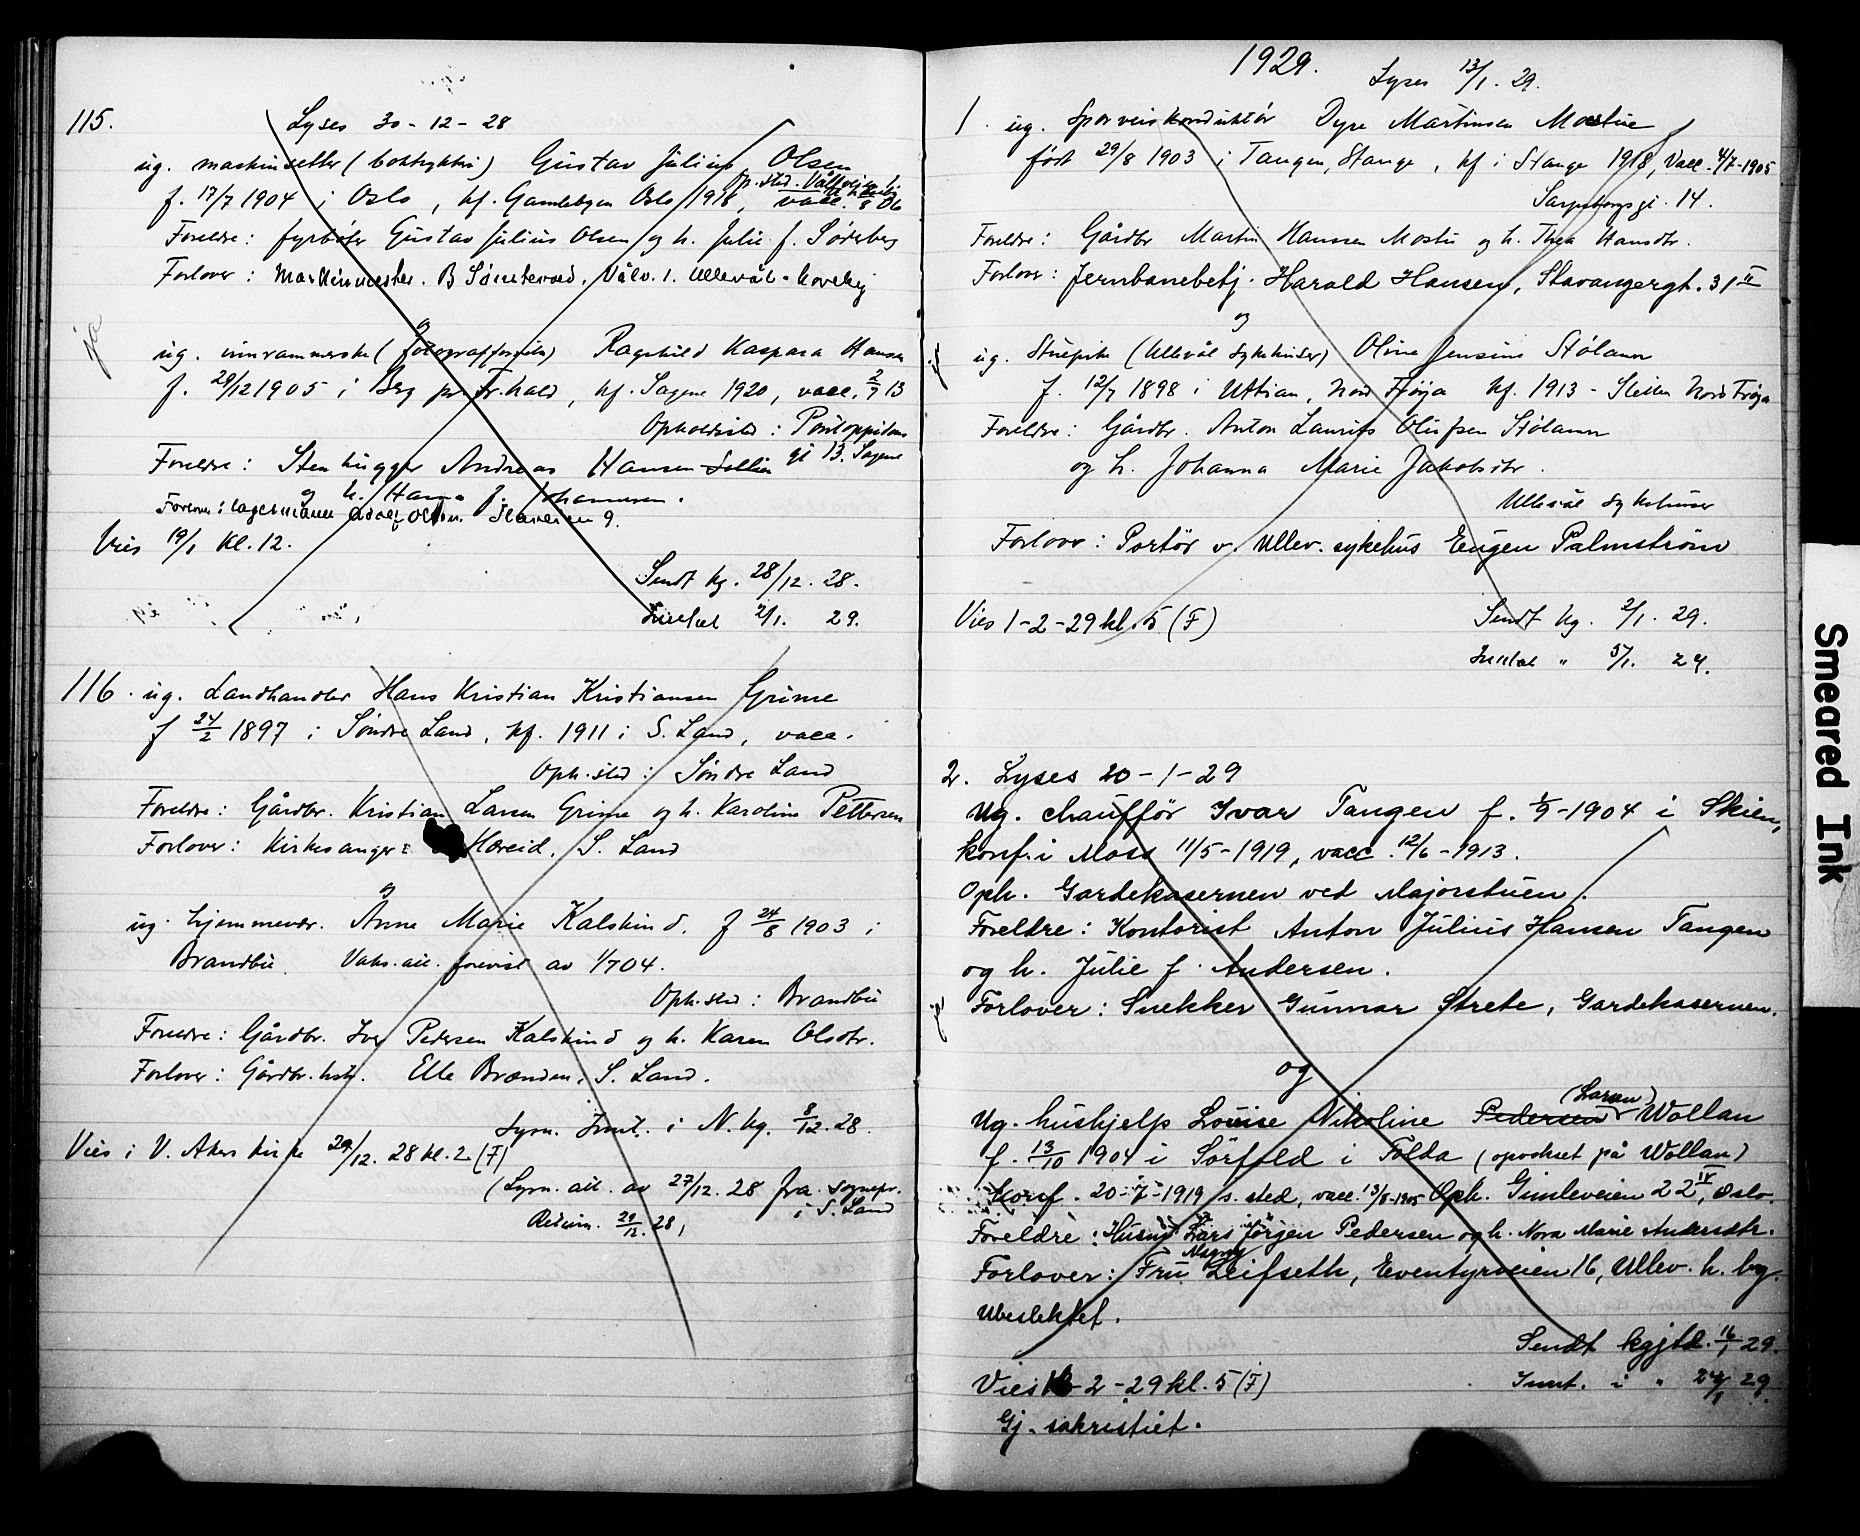 115.
Lyses 30-12-28
ug. maskinsetter (boktrykkeri) Gustav Julius Olsen
op.sted. Våle
f. 17/7 1904 i Oslo, kf. Gamlebyen Oslo 1918, vacc. 06
Foreldre: fyrbøter Gustav Julius Olsen og h. Julie f. Søderberg
Forlover: Maskinmester. B Sønstevold, Vålv. 1. Ullevål-haveby
ja
og
ug. innrammerske (fotografforretn.) Ragnhild Kaspara Hansen
f. 29/12 1905 i Berg pr. Fr.hald, kf. Sagene 1920, vacc. 2/9 13
Opholdssted: Pontoppidans
gt 13. Sagene
Foreldre: Stenhugger Andreas Hansen Sollien
og h. Hanna f. Johannesen.
Forlover: lagermann Adolf Olsen. 9.
Vies 19/1 kl. 12.
Sendt kg. 28/12. 28.
Innkal 2/1. 29.
116. ug. Landhandler Hans Kristian Kristiansen Grime
f 24/2 1897 i Søndre Land, kf. 1911 i S. Land, vacc.
Oph.sted: Søndre Land
Foreldre: Gårdbr. Kristian Larsen Grime og h. Karoline Pettersen
Forlover: Kirkesanger: Hæreid. S. Land
og
ug. hjemmevær. Anne Marie Kalskind. f 24/8 1903 i
Brandbu. Vaks.att. forevist av 1/7 04.
Oph.sted: Brandbu
Foreldre: Gårdbr. Iver Pedersen Kalskind og h. Karen Olsdtr.
Forlover: Gårdbr. hstr. Elle Brænden, S. Land.
Lysn. Innt. i N. kg. 8/12. 28.
Vies i V. Aker kirke 29/12. 28 kl. 2 (F)
(Lysn. att. av 27/12. 28 fra sognepr.
i S. Land
29/12. 28,
1929.
Lyses 13/1. 29.
1. ug. Sporveiskonduktør Dyre Martinsen Mostue
født 29/8 1903 i Tangen, Stange, kf i Stange 1918, Vacc. 4/7-1905
Sarpsborggt. 14.
Foreldre: Gårdbr Martin Hansen Mostu og h. Thea Hansdtr.
Forlover: Jernbanebetj. Harald Hansen, Stavangergt. 31 II
og
ug. Stuepike (Ullevål Sykehuser) Oline Jensine Stølann
f. 12/7 1898 i Uttian, Nord Frøya kf. 1913 - Sletten Nord Frøya
Foreldre: Gårdbr. Anton Laurits Olufsen Stølann
og h. Johanna Marie Jakobsdtr.
Ullevål Sykehuser
Forlover: Portør v. Ullev. sykehus Eugen Palmstrøm
Vies 1-2-29 kl. 5 (F)
Sendt kg. 2/1. 29.
Innkal " 5/1. 29.
2. Lyses 20-1-29
Ug. chauffør Ivar Tangen f. 1/9-1904 i Skien,
konf. i Moss 11/5-1919, vacc. 12/6-1913.
Oph. Gardekasernen ved Majorstuen.
Foreldre: Kontorist Anton Julius Hansen Tangen
og h. Julie f. Andersen.
ja
Forlover: Snekker Gunnar Strete, Gardekasernen.
og
(Larsen)
Ug. hushjelp Louise Nikoline Pedersen Wollan
f. 13/10 1904 i Sørfold i Folda (opvokset på Wollan)
Konf. 20-7-1919 s. sted, vacc. 13/8-1905 Oph. Gimleveien 22 IV, Oslo.
Foreldre: Husm. Lars Jørgen Pedersen og h. Nora Marie Andersdtr.
Magny
Forlover: Fru Leifseth, Eventyrveien 16, Ullev. h. by.
Ubeslektet.
Sendt kgjtd. 16/1 29.
Vies 16-2-29 kl. 5 (F)
Innt. i " 24/1 29.
Gj. sakristiet.
Smeared Ink